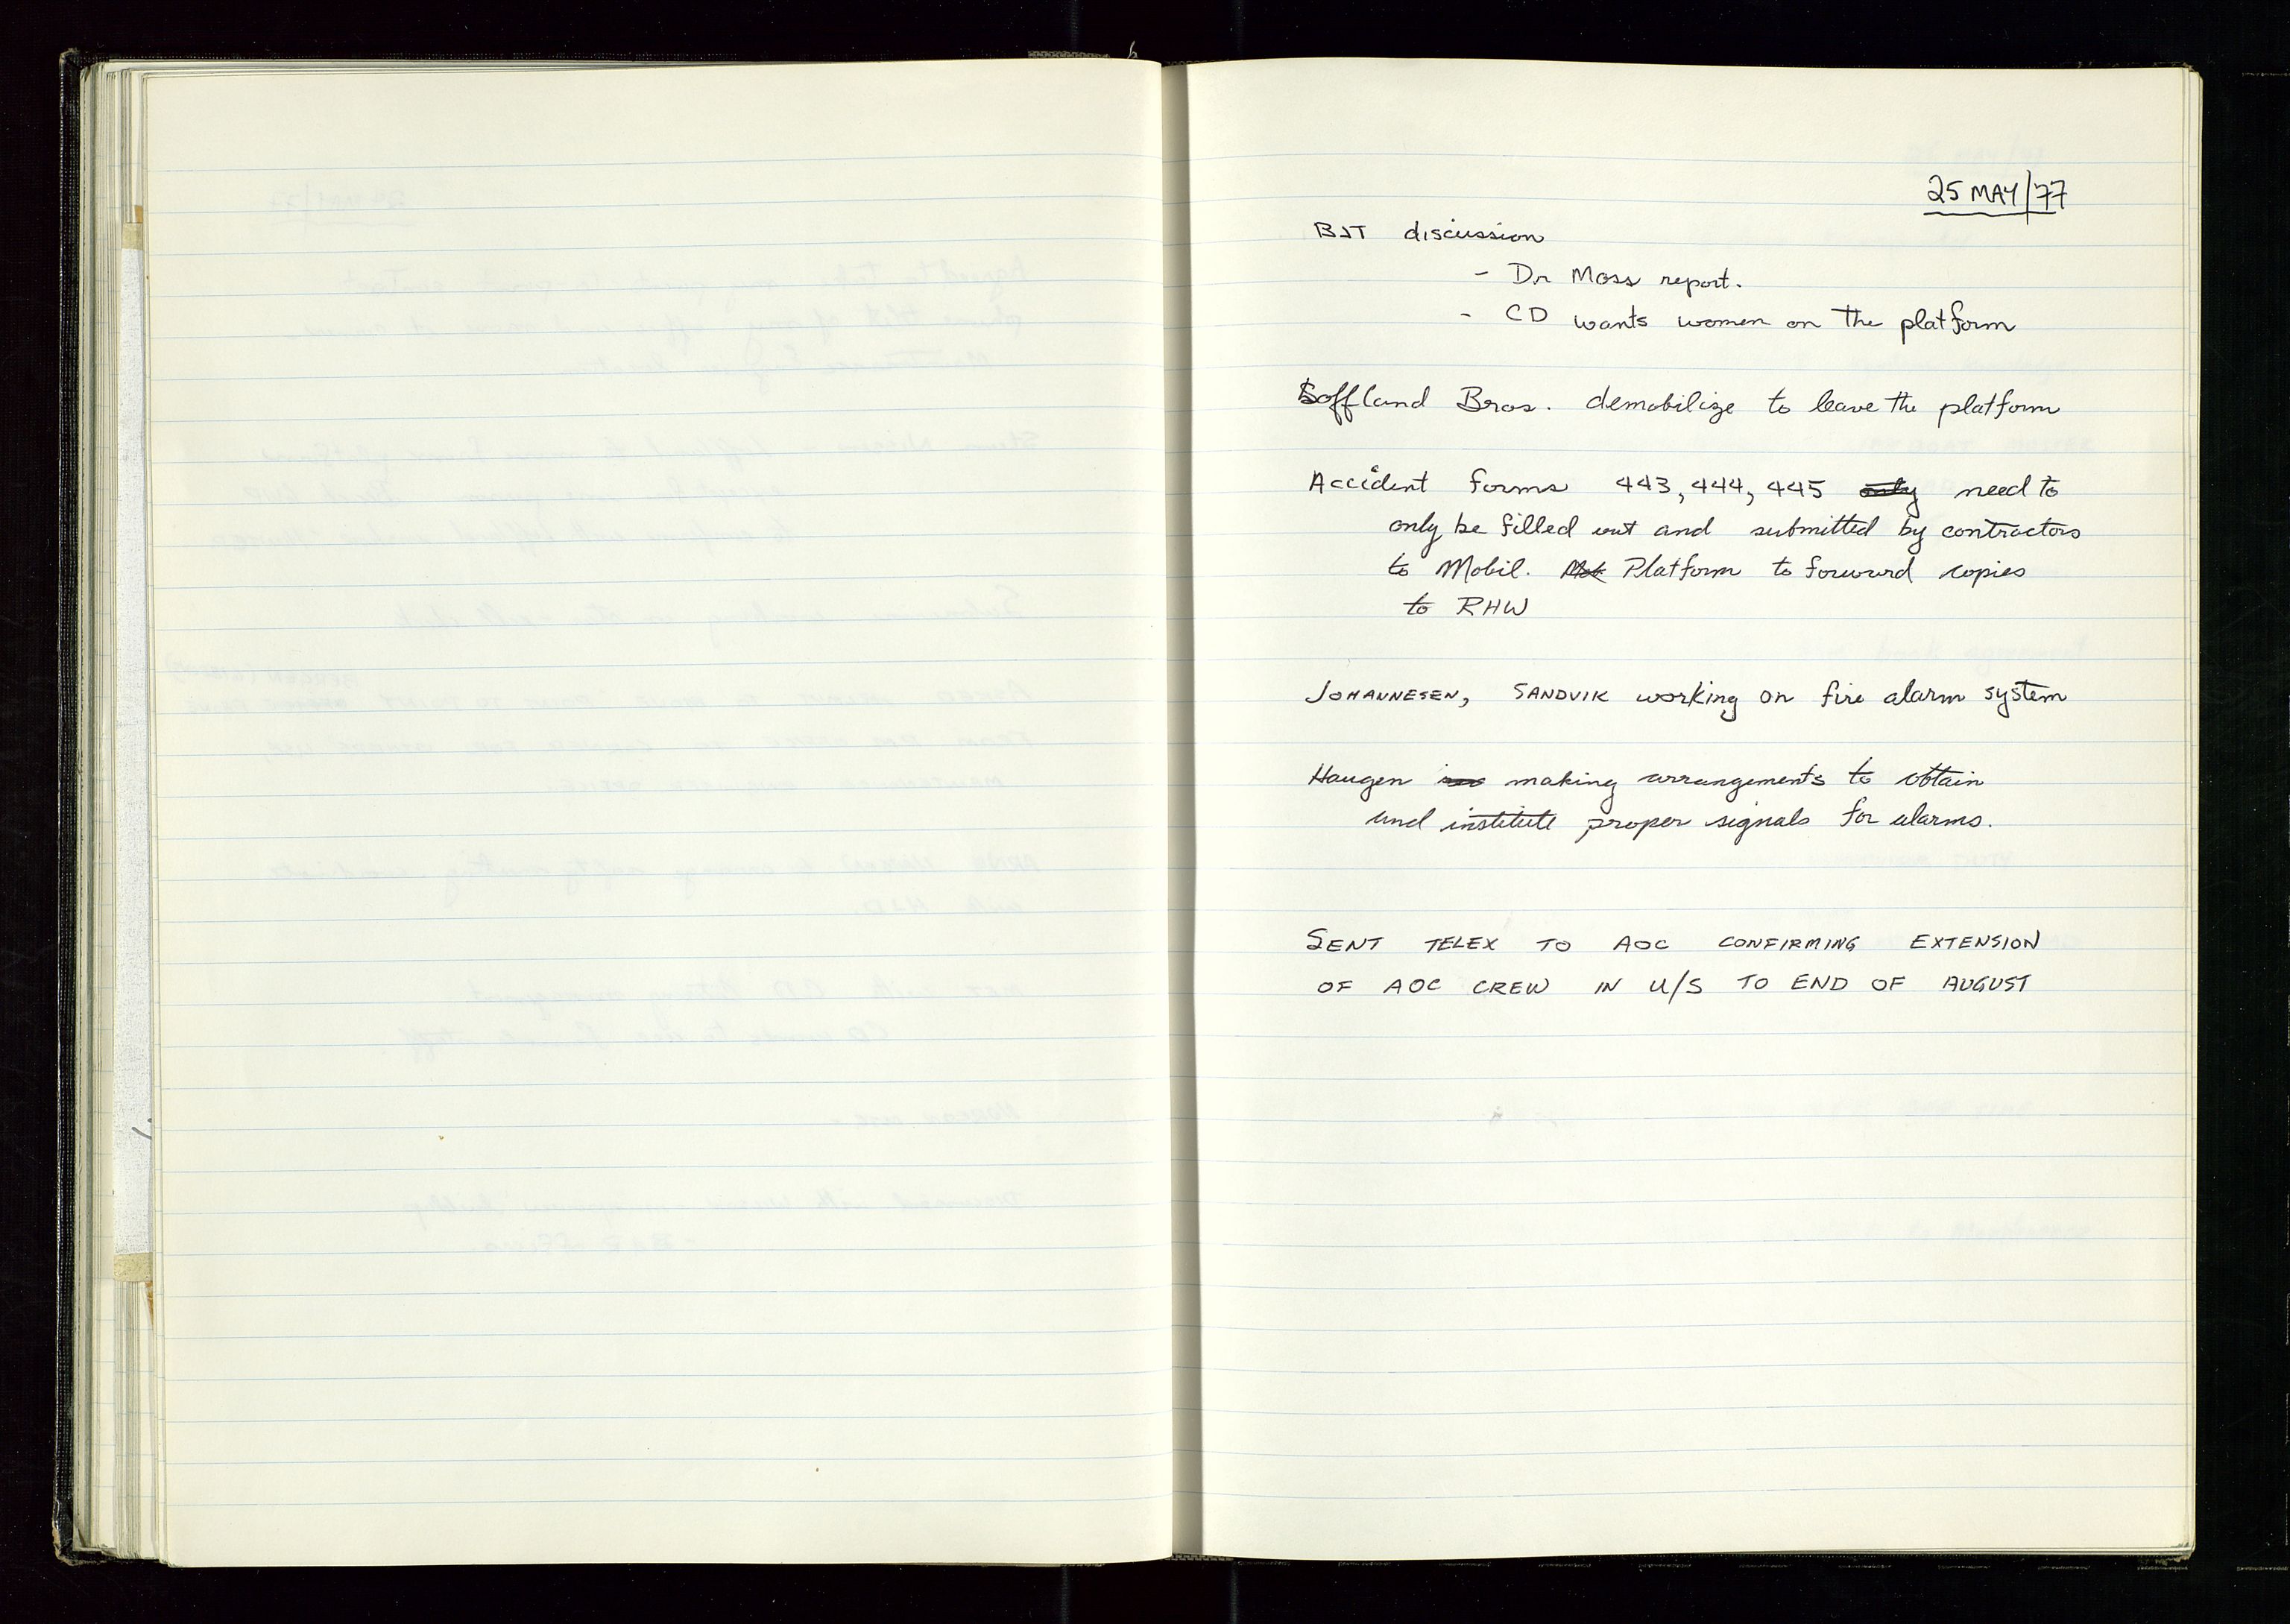 25 MAY/77
BJT discussion
- Dr Moss report.
- CD wants women on the platform
Loffland Bros. demobilize to leave the platform
Accident forms 443, 444, 445 only need to
only be filled out and submitted by contractors
to Mobil. Platform to forward copies
to RHW
JOHANNESEN, SANDVIK working on fire alarm system
Haugen making arrangements to obtain
and institute proper signals for alarms.
SENT TELEX TO AOC CONFIRMING EXTENSION
OF AOC CREW IN U/S TO END OF AUGUST